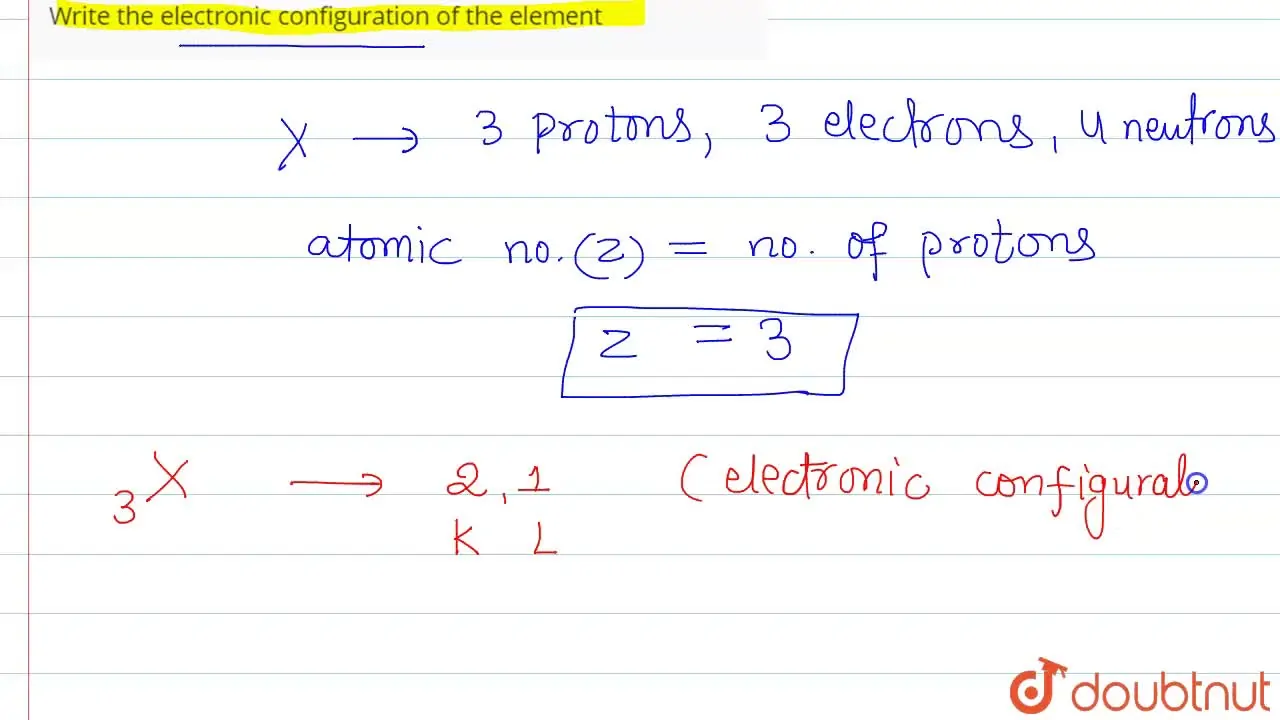 Write the electronic configuration of the element
X → 3 protons, 3 electrons, 4 neutrons
atomic no. (z) = no. of protons
z = 3
₃X → 2, 1 (electronic configurat
K L
doubtnut